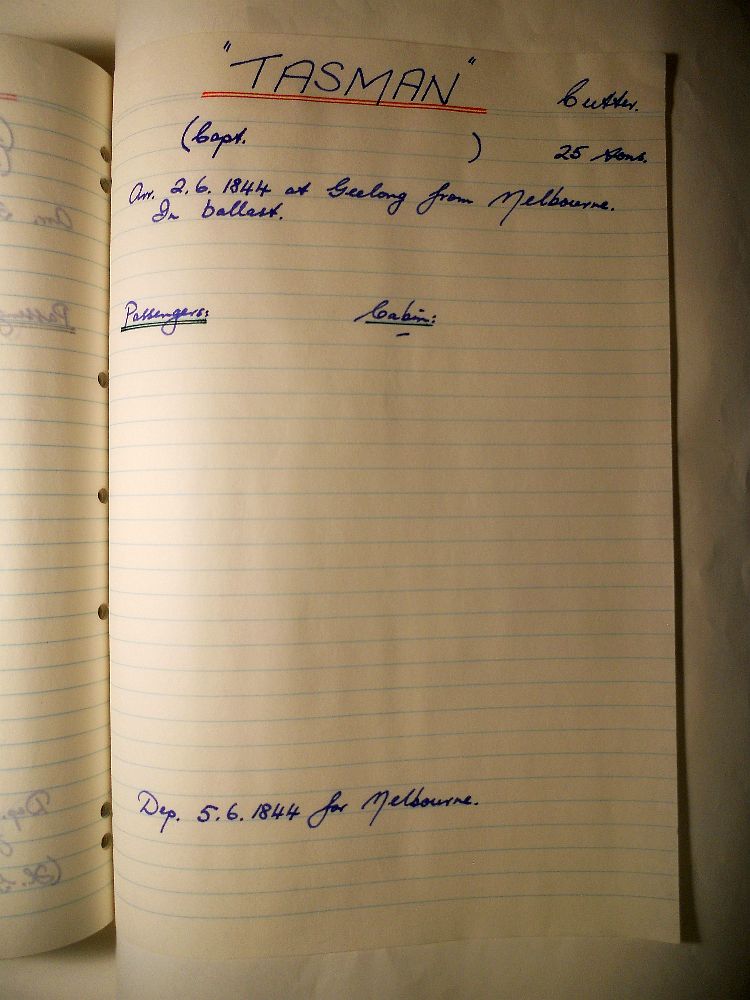 "TASMAN"
Cutter.
(Capt. )
25 tons.
Arr. 2.6.1844 at Geelong from Melbourne.
In ballast.
Passengers: Cabin:
Dep. 5.6.1844 for Melbourne.